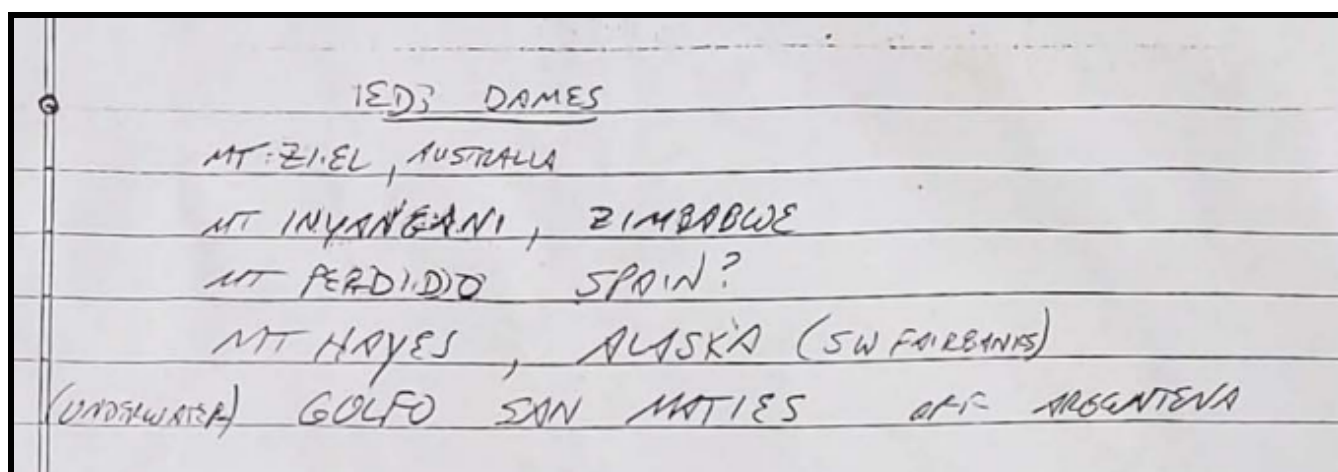 ED DAMES
MT. ZIEL, AUSTRALIA
MT INYANGANI, ZIMBABWE
MT PERDIDO SPAIN?
MT HAYES, ALASKA (SW FAIRBANKS)
(UNDERWATER) GOLFO SAN MATIES OFF ARGENTENA